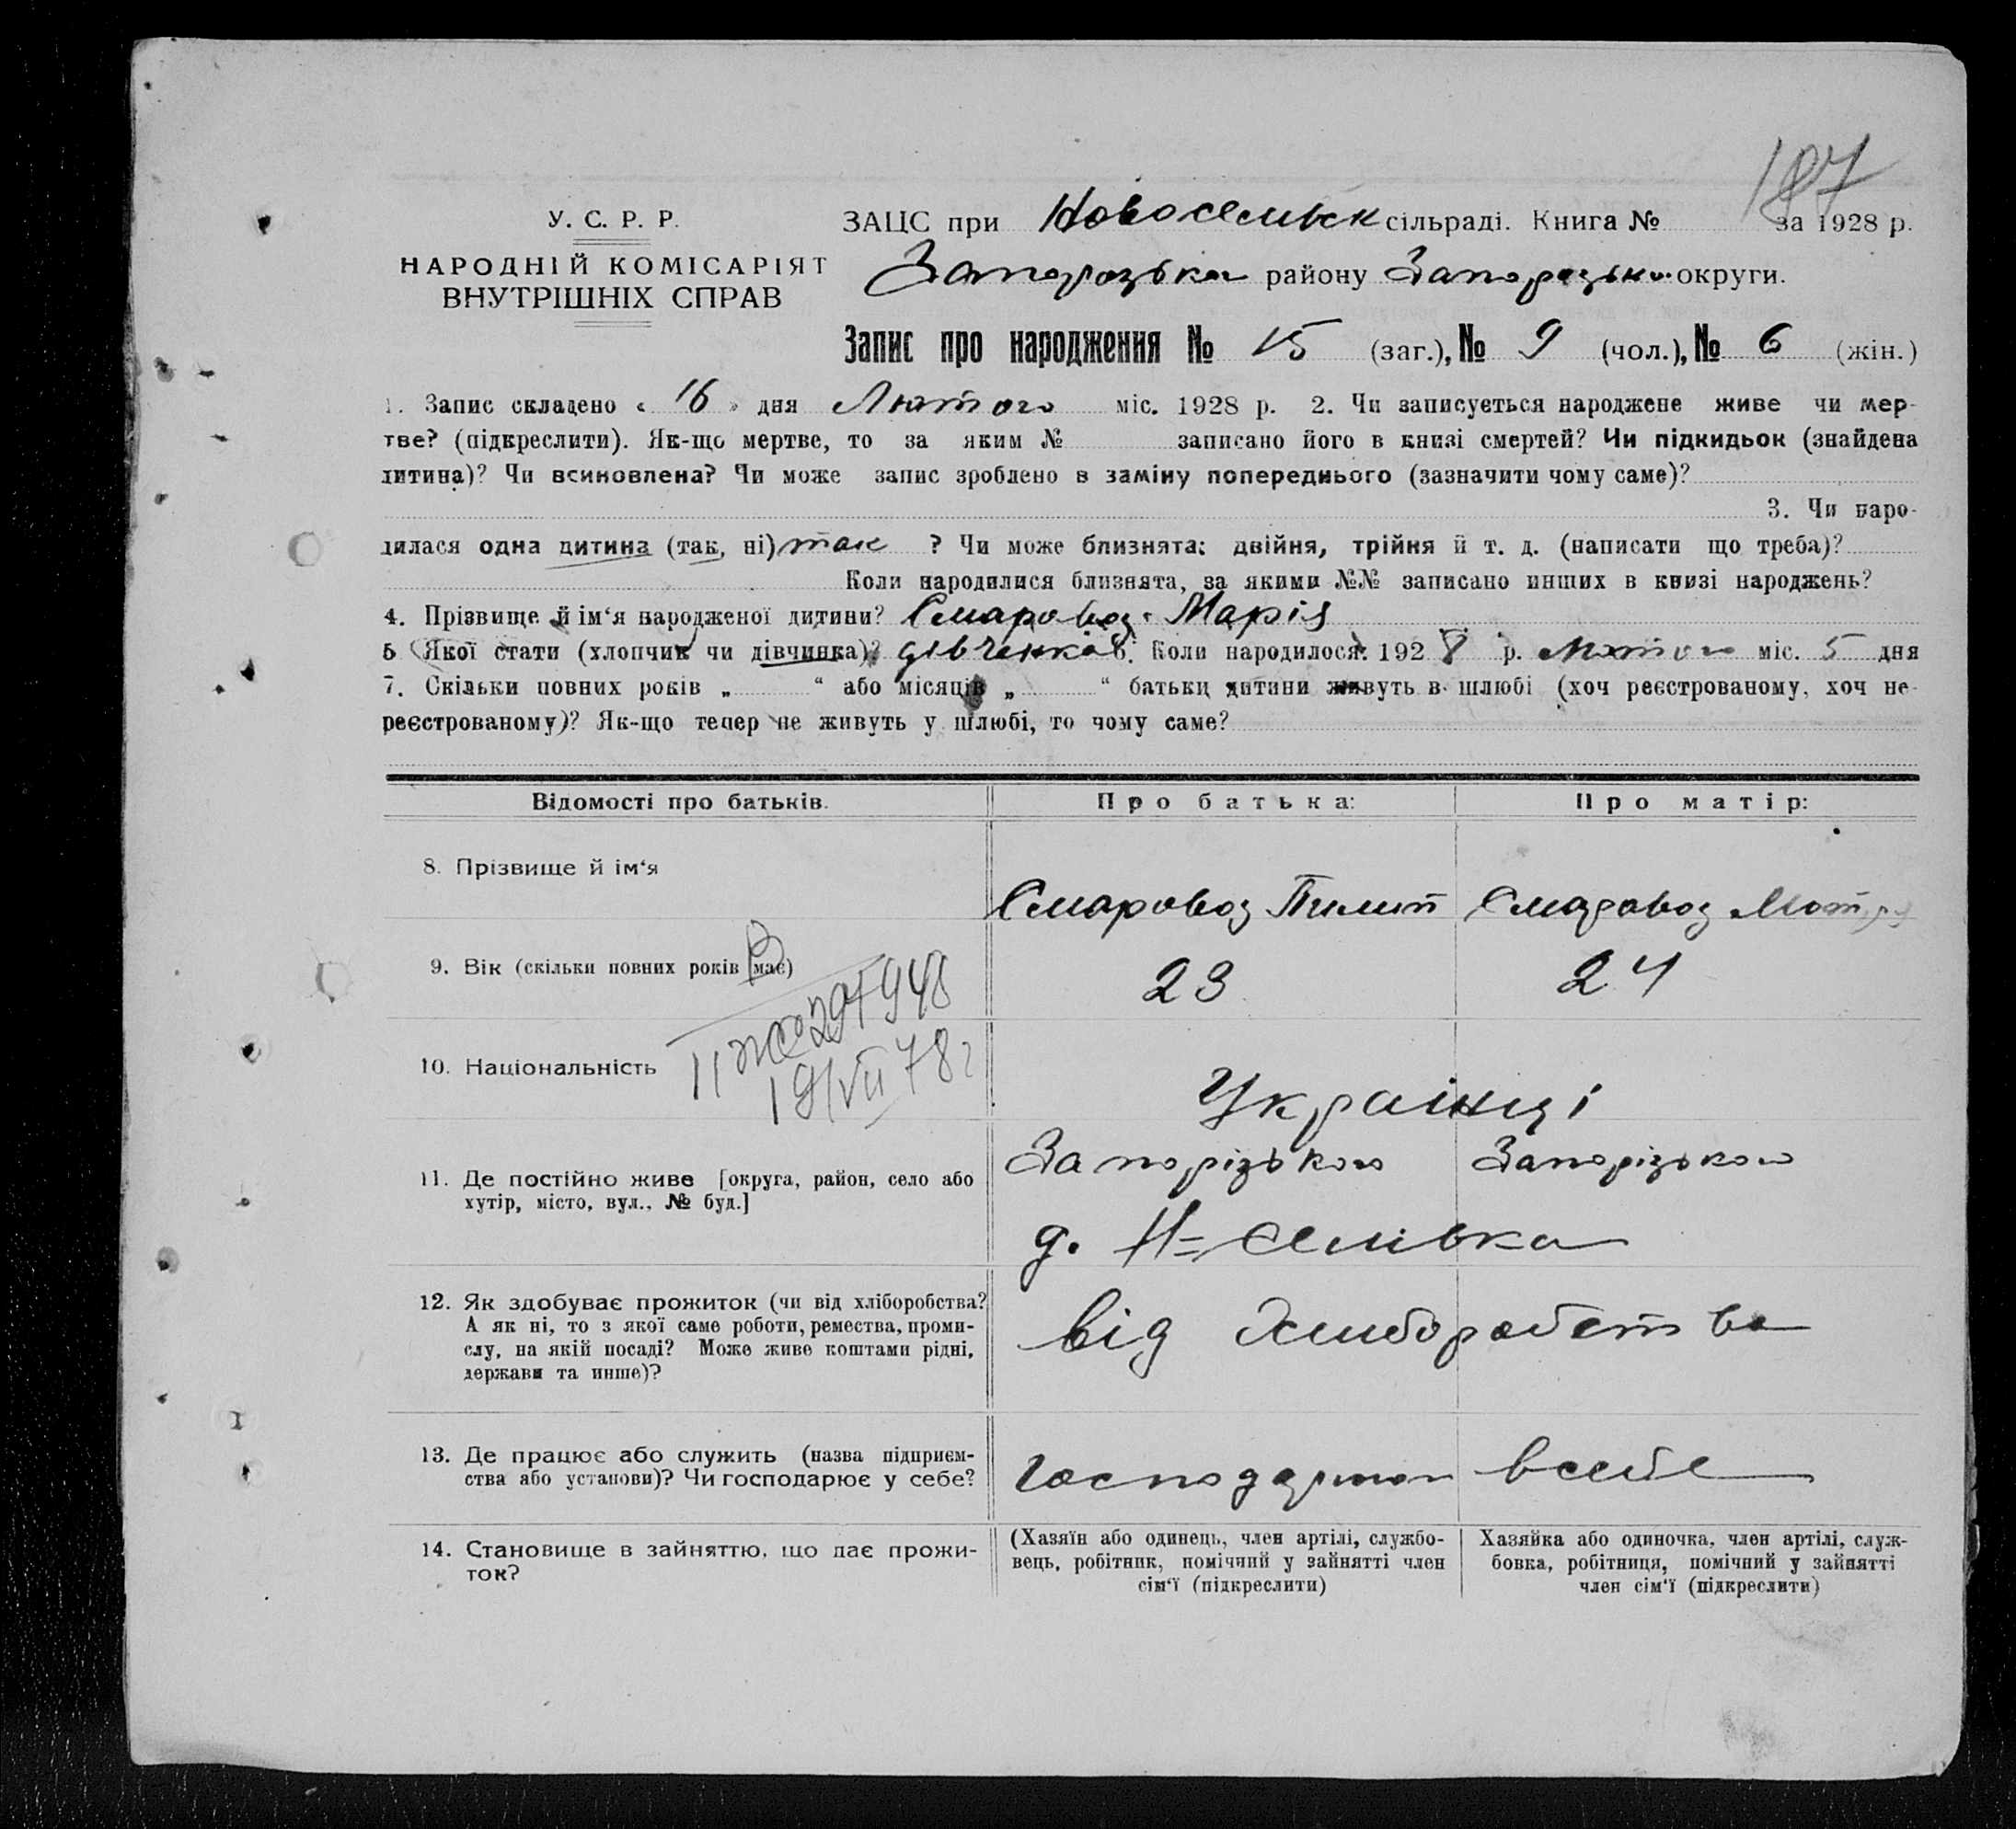 187
У. С. Р. Р.
НАРОДНІЙ КОМІСАРІЯТ
ВНУТРІШНІХ СПРАВ
ЗАЦС при Новоселівськ сільраді. Книга № за 1928 р.
Запорозька району Запорозька округи.
Запис про народження № 15 (заг.), № 9 (чол.), № 6 (жін.)
1. Запис складено « 16 » дня Лютого міс. 1928 р. 2. Чи записується народжене живе чи мер-
тве? (підкреслити). Як-що мертве, то за яким № записано його в книзі смертей? Чи підкидьок (знайдена
дитина)? Чи всиновлена? Чи може запис зроблено в заміну попереднього (зазначити чому саме)?
3. Чи наро-
дилася одна дитина (так, ні) так ? Чи може близнята: двійня, трійня й т. д. (написати що треба)?
Коли народилися близнята, за якими №№ записано инших в книзі народжень?
4. Прізвище й ім‘я народженої дитини? Смаровоз Марія
5 Якої стати (хлопчик чи дівчинка)? дівченка 6. Коли народилося: 1928 р. Лютого міс. 5 дня
7. Скільки повних років „ “ або місяців „ “ батьки дитини живуть в шлюбі (хоч реєстрованому, хоч не-
реєстрованому)? Як-що тепер не живуть у шлюбі, то чому саме?
Відомості про батьків. Про батька: Про матір:
8. Прізвище й ім‘я Смаровоз Пилип Смаровоз Мотря
9. Вік (скільки повних років має) 23 24
10. Національність Українці
19/VII 78 г
11. Де постійно живе [округа, район, село або Запорізького Запорізького
хутір, місто, вул., № буд.] д. Н=Селівка
12. Як здобуває прожиток (чи від хліборобства? від хлиборобства
А як ні, то з якої саме роботи, ремества, проми-
слу, на якій посаді? Може живе коштами рідні,
держави та инше)?
13. Де працює або служить (назва підприєм- господарюют всебе
ства або установи)? Чи господарює у себе?
14. Становище в зайняттю, що дає прожи-
ток?
(Хазяїн або одинець, член артілі, службо-
вець, робітник, помічний у зайнятті член
сім‘ї (підкреслити)
Хазяйка або одиночка, член артілі, служ-
бовка, робітниця, помічний у зайнятті
член сім‘ї (підкреслити)